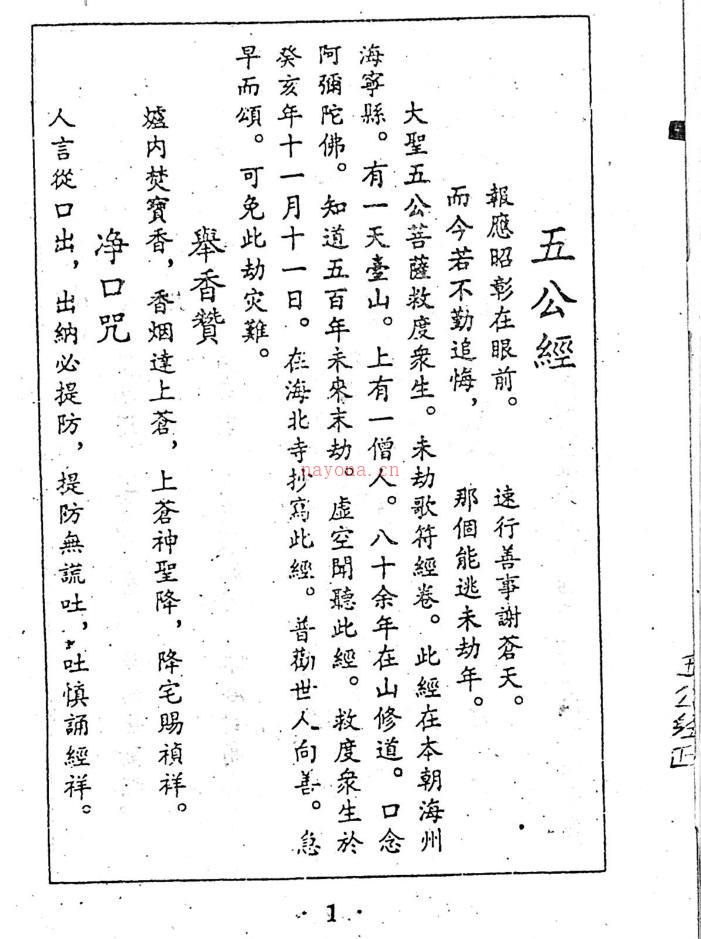 五公經
報應昭彰在眼前。 速行善事謝蒼天。
而今若不勤追悔， 那個能逃末劫年。
大聖五公菩薩救度衆生。末劫歌符經卷。此經在本朝海州
海寧縣。有一天臺山。上有一僧人。八十余年在山修道。口念
阿彌陀佛。知道五百年未來末劫。虛空聞聽此經。救度衆生於
癸亥年十一月十一日。在海北寺抄寫此經。普勸世人向善。急
早而頌。可免此劫灾難。
舉香贊
爐内焚寶香，香烟達上蒼，上蒼神聖降，降宅賜禎祥。
净口咒
人言從口出，出納必提防，提防無謊吐，吐慎誦經祥。
nayona.cn
五公經
· 1 ·